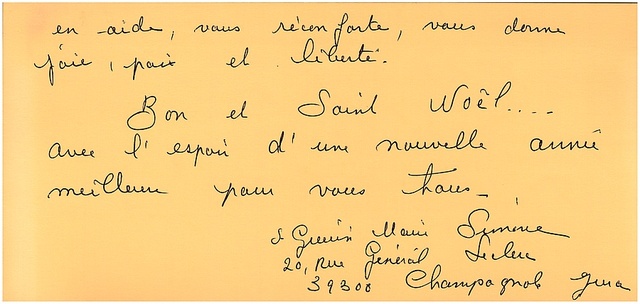 en aide, vous réconforte, vous donne
joie, paix et liberté.
Bon et Saint Noël....
avec l'espoir d'une nouvelle année
meilleure pour vous tous_
Marie Simone
20, Rue Général Leclerc
39300 Champagnole Jura